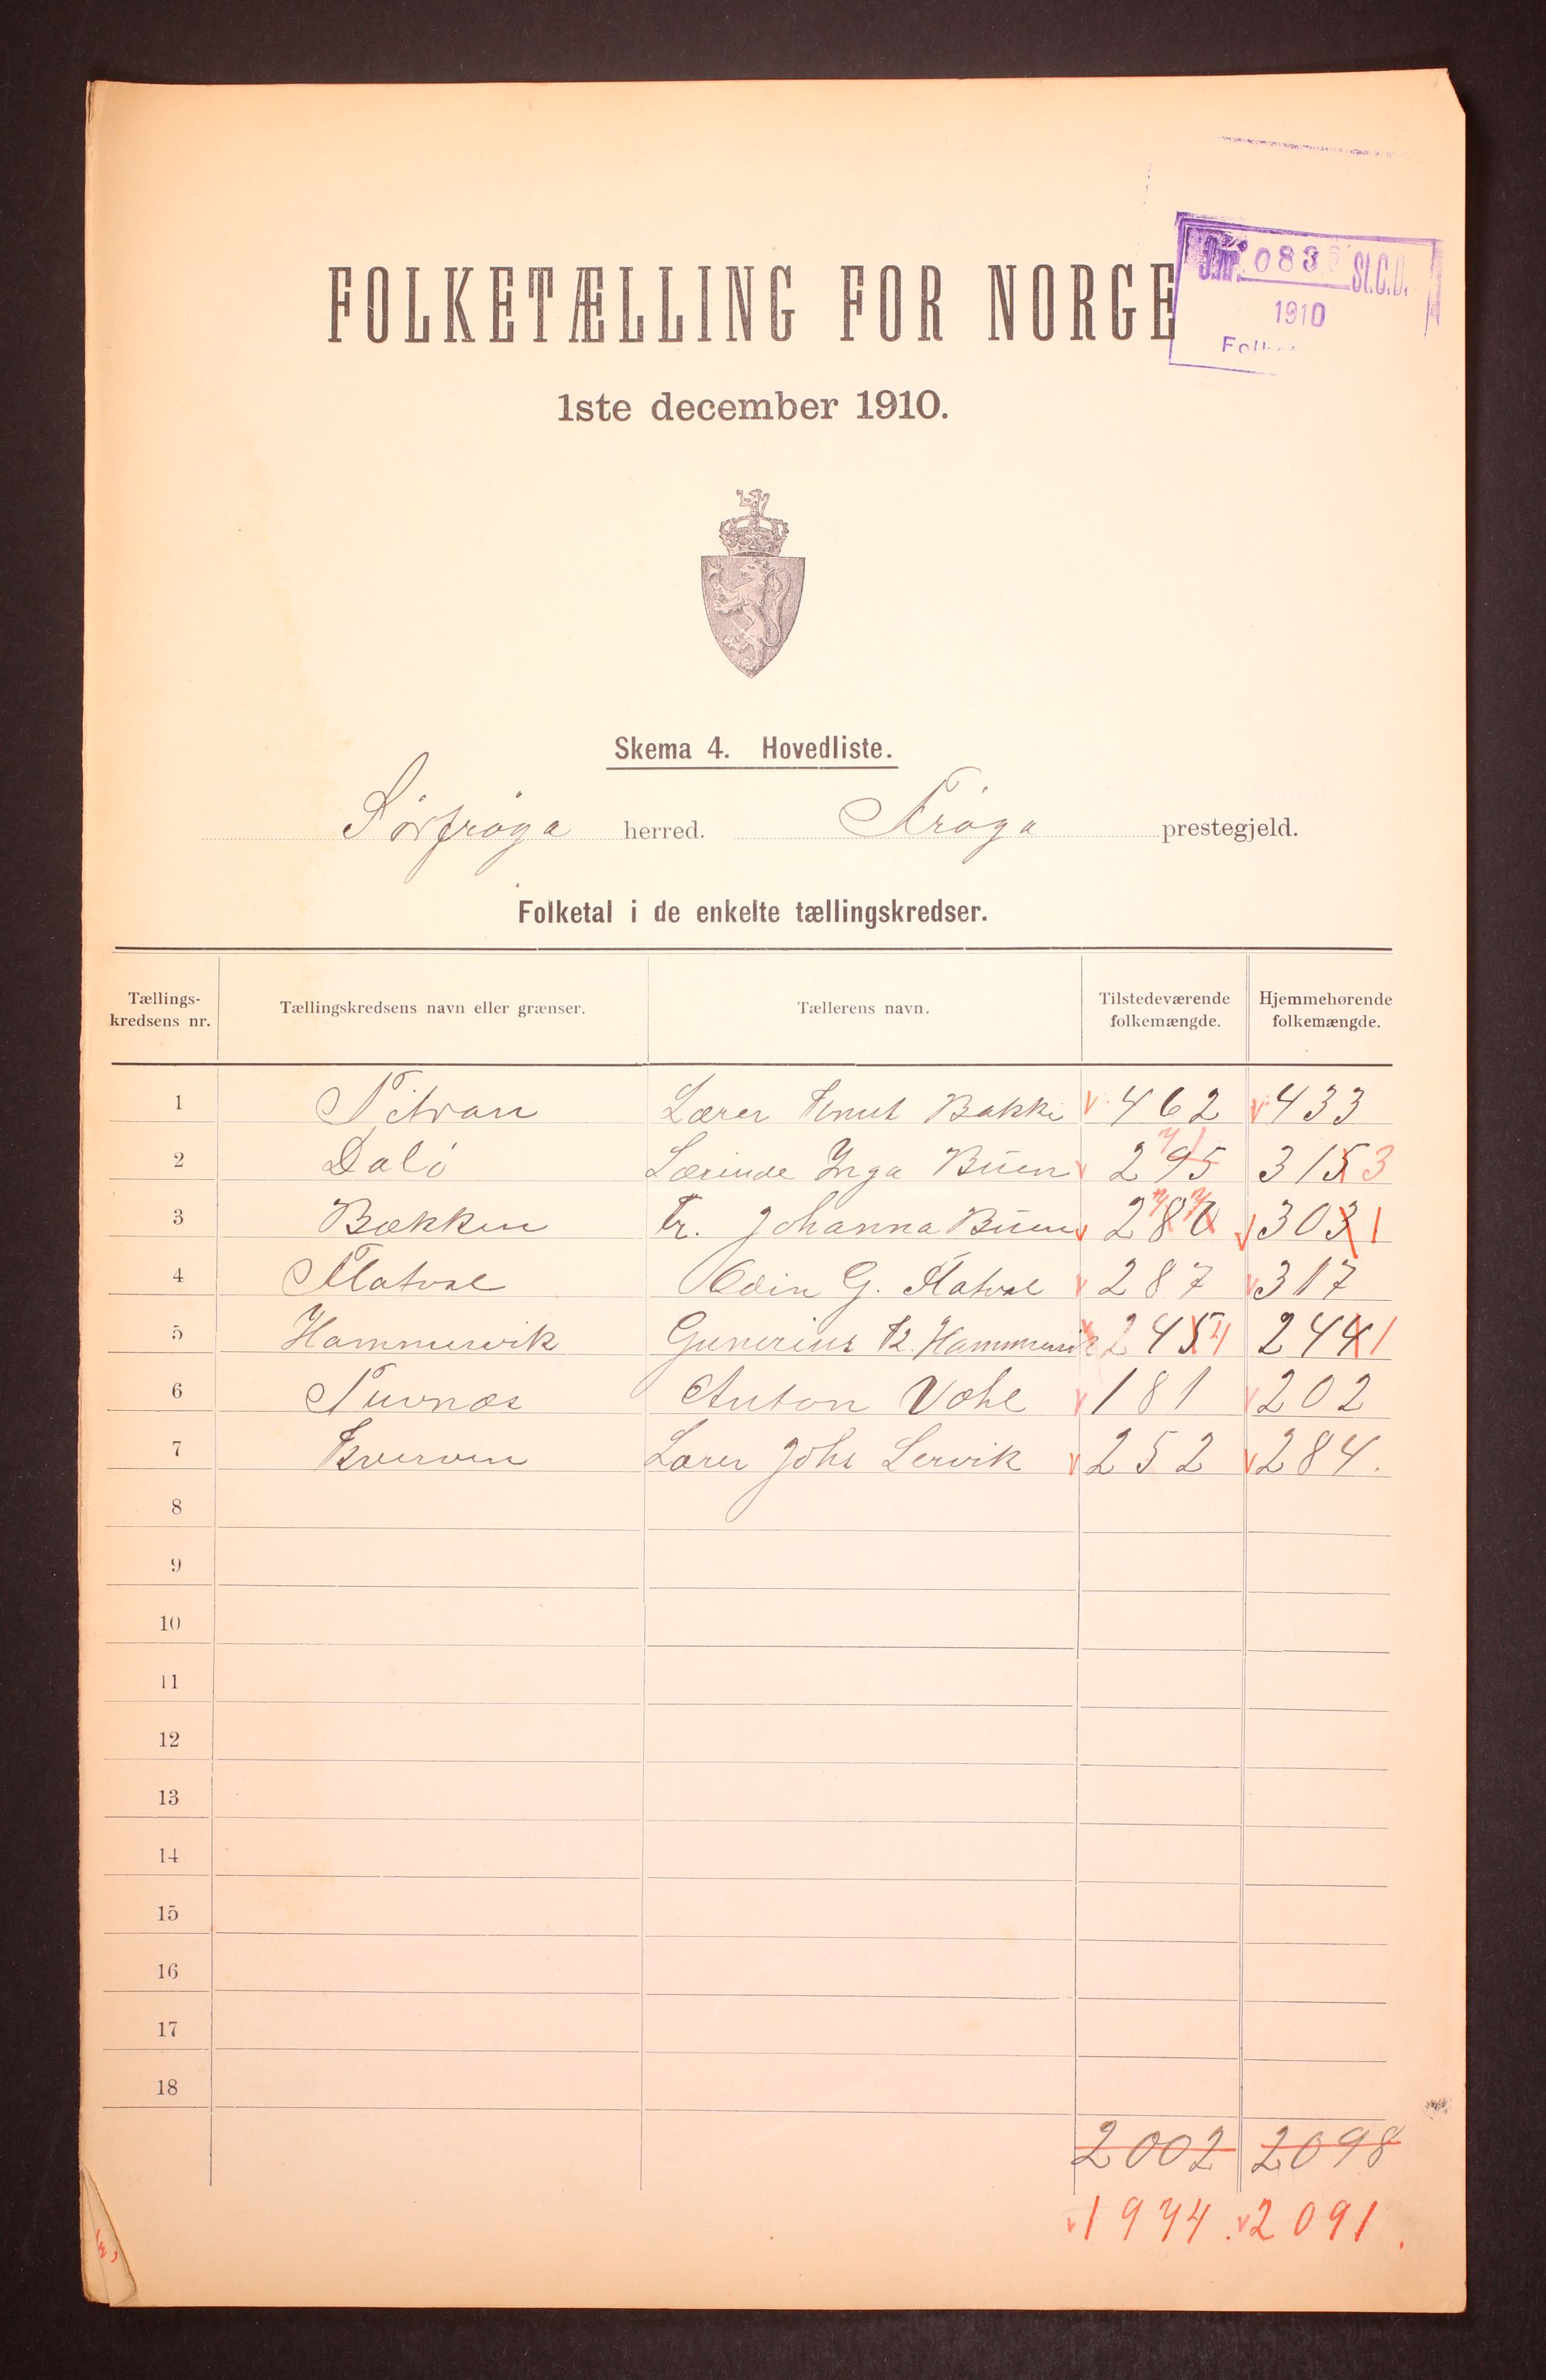 J.nr. 083 St.C.B.
1910
FOLKETÆLLING FOR NORGE
1ste december 1910.
Skema 4. Hovedliste.
Sörfröya herred. Fröya prestegjeld.
Folketal i de enkelte tællingskredser.
Tællings-kredsens nr. Tællingskredsens navn eller grænser. Tællerens navn. Tilstedeværende folkemængde. Hjemmehørende folkemængde.
1 Titran Lærer Knut Bakke 462 433
2 Dalö Lærinde Inga Büen 295 315 3
3 Bækken Fr. Johanna Büen 280 303 1
4 Flatval Odin G. Flatval 287 317
5 Hammervik Gunerius K. Hammervik 245 4 244 1
6 Tuvnæs Anton Vahl 181 202
7 Kverven Lærer Johs Lervik 252 284.
8
9
10
11
12
13
14
15
16
17
18
2002 2098
1974. 2091.